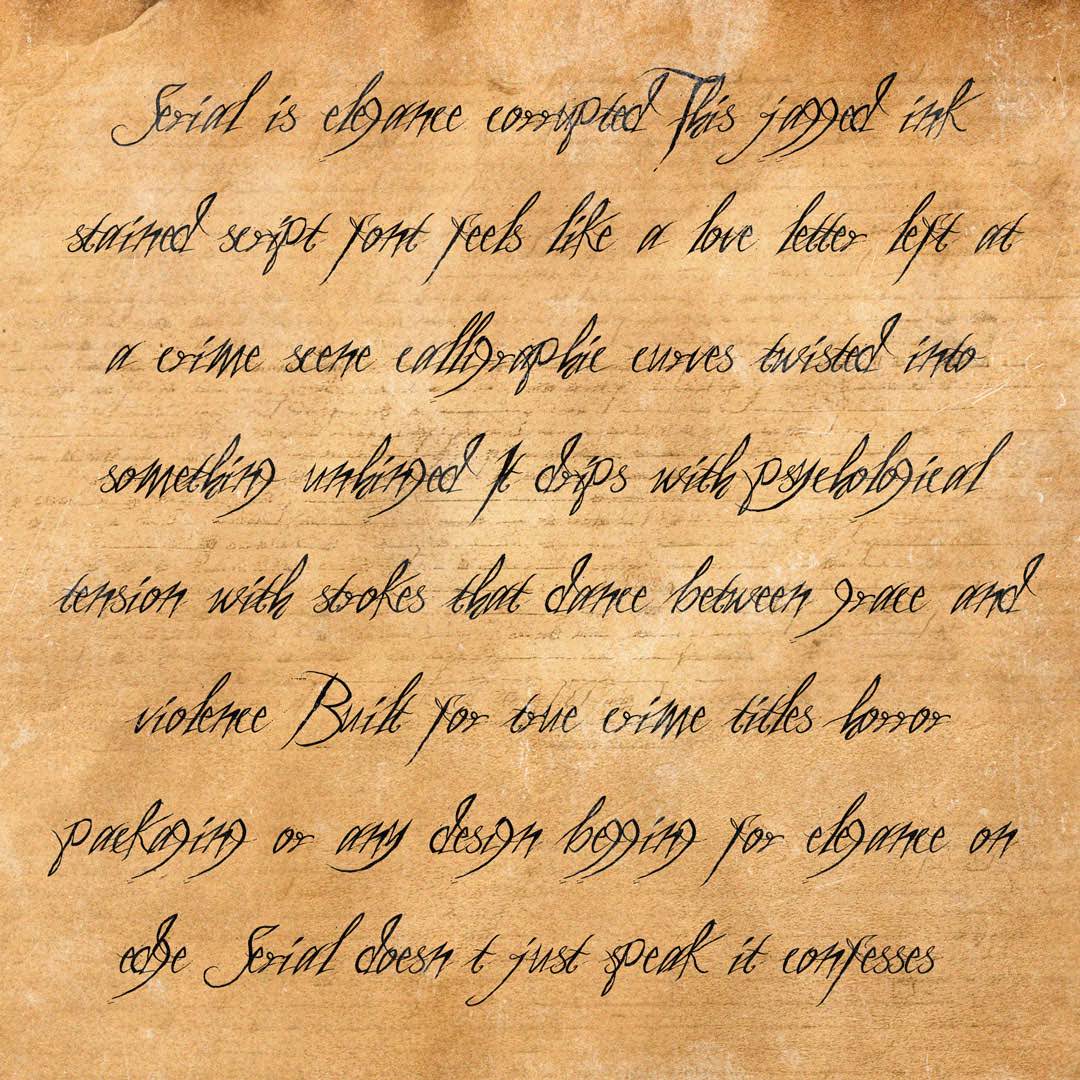 Serial is elegance corrupted This jagged ink
stained script font feels like a love letter left at
a crime scene calligraphic curves twisted into
something unhinged It drips with psychological
tension with strokes that dance between grace and
violence Built for true crime titles horror
packaging or any design begging for elegance on
edge Serial doesn t just speak it confesses